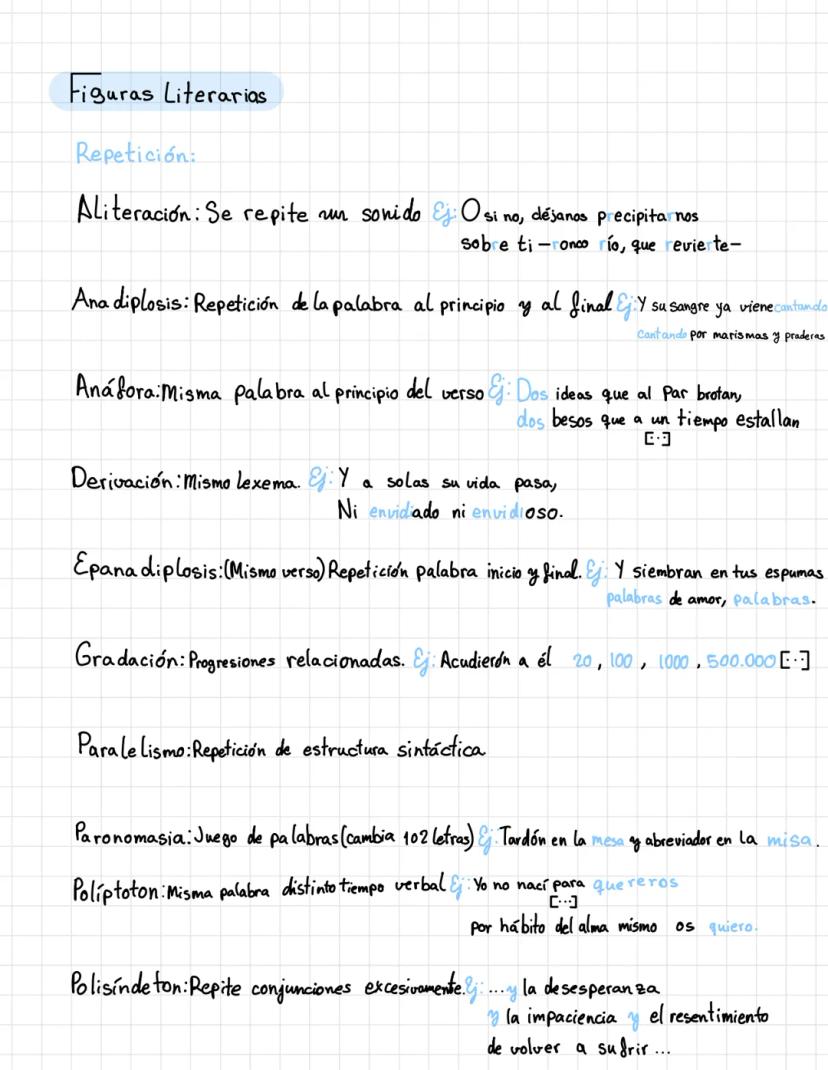 Figuras Literarias
Repetición:
Aliteración: Se repite un sonido Ej: O si no, déjanos precipitarnos
sobre ti – ronco río, que revierte –
Anadiplosis: Repetición de la palabra al principio y al final Ej: Y su sangre ya viene cantando
Cantando por marismas y praderas
Anáfora: Misma palabra al principio del verso Ej: Dos ideas que al Par brotan,
dos besos que a un tiempo estallan
[..]
Derivación: Mismo lexema. Ej: Y a solas su vida pasa,
Ni envidiado ni envidioso.
Epanadiplosis: (Mismo verso) Repetición palabra inicio y final. Ej: Y siembran en tus espumas
palabras de amor, palabras.
Gradación: Progresiones relacionadas. Ej: Acudierón a él 20, 100, 1000, 500.000 [..]
Paralelismo: Repetición de estructura sintáctica
Paronomasia: Juego de palabras (cambia 1 o 2 letras) Ej: Tardón en la mesa y abreviador en la misa.
Políptoton: Misma palabra distinto tiempo verbal Ej: Yo no nací para quereros
[...]
Por hábito del alma mismo os quiero.
Polisíndeton: Repite conjunciones excesivamente. Ej: ...y la desesperanza
y la impaciencia y el resentimiento
de volver a sufrir...